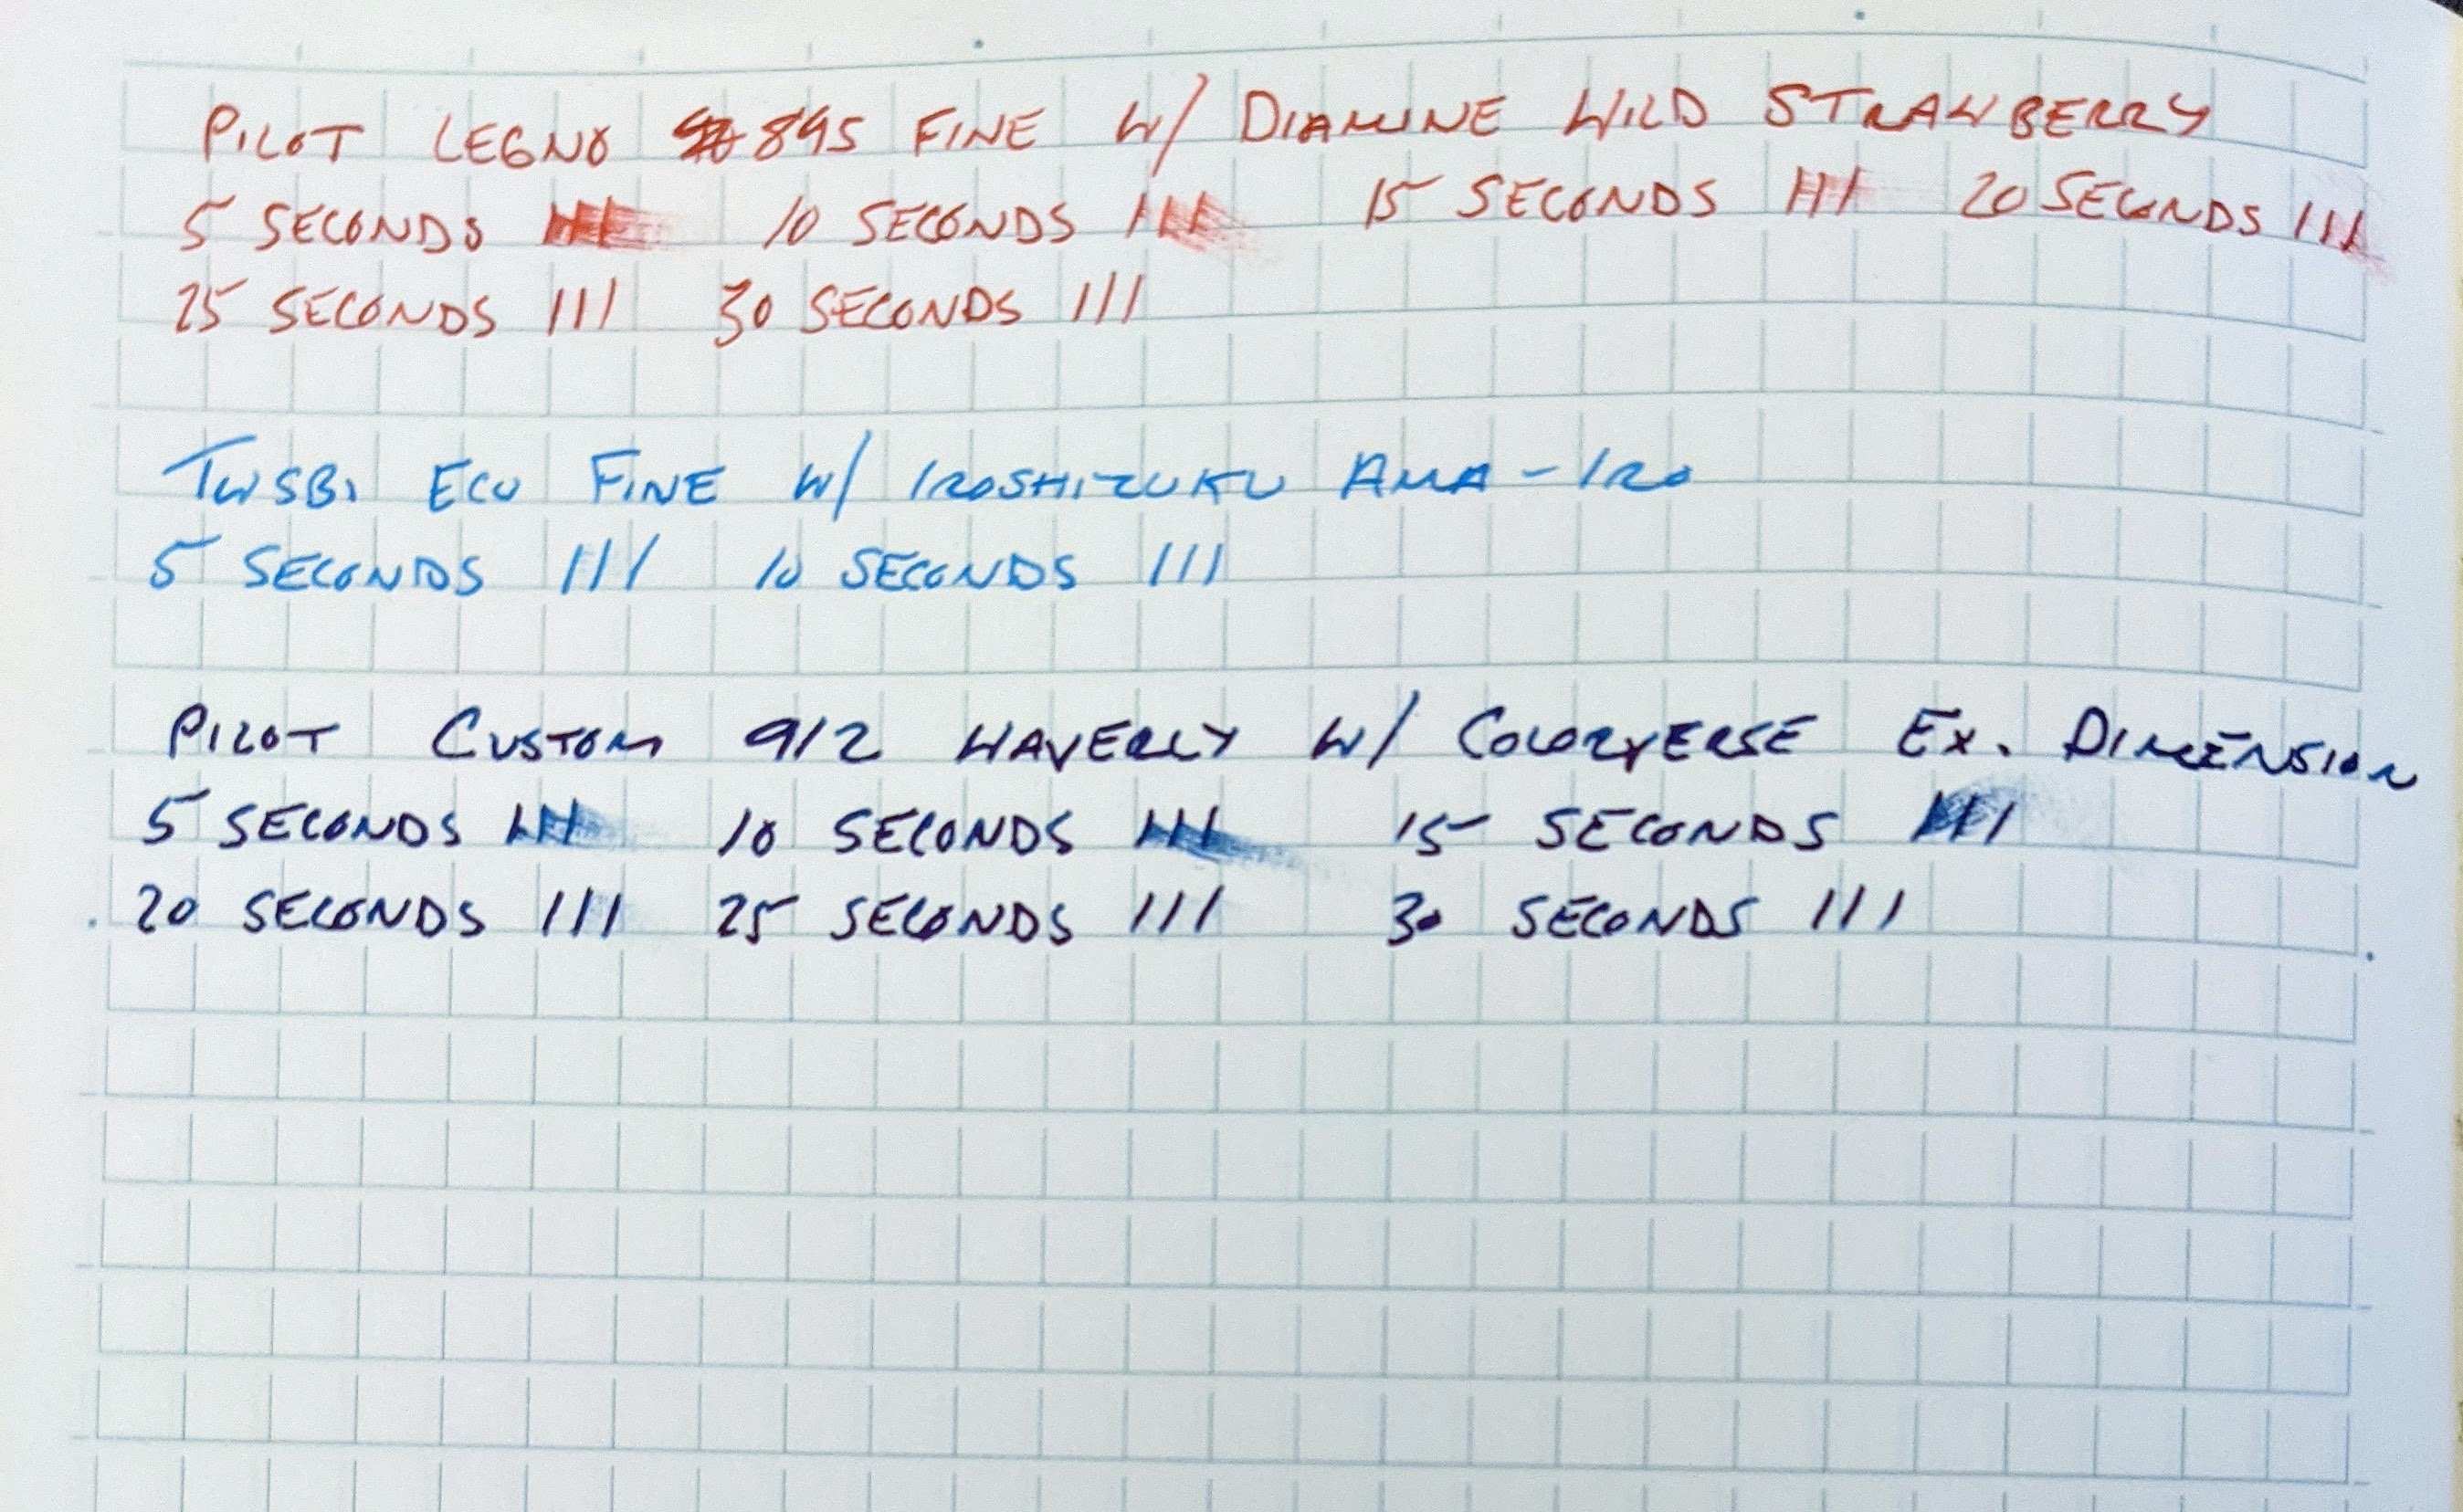 PILOT LEGNO 895 FINE W/ DIAMINE WILD STRAWBERRY
5 SECONDS III 10 SECONDS III 15 SECONDS III 20 SECONDS III
25 SECONDS III 30 SECONDS III
TWSBI ECO FINE W/ IROSHIZUKU AMA-IRO
5 SECONDS III 10 SECONDS III
PILOT CUSTOM 912 WAVERLY W/ COLORVERSE EX. DIMENSION
5 SECONDS III 10 SECONDS III 15 SECONDS III
20 SECONDS III 25 SECONDS III 30 SECONDS III